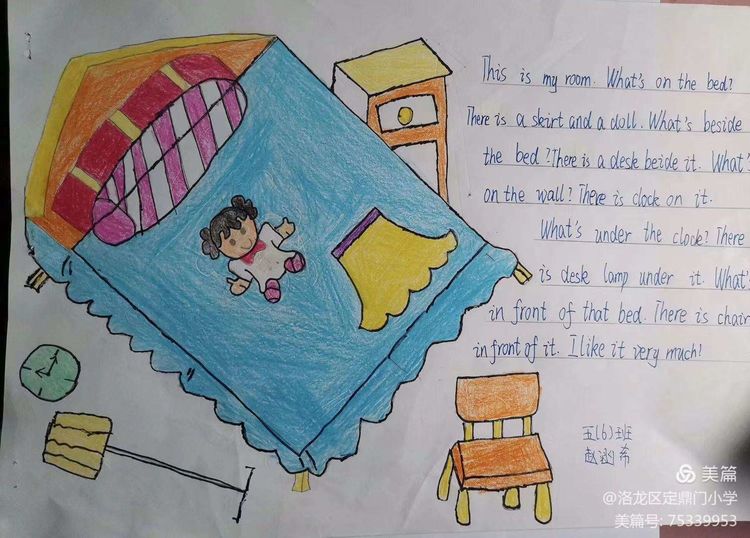 This is my room. What's on the bed?
There is a skirt and a doll. What's beside
the bed? There is a desk beide it. What's
on the wall? There is clock on it.
What's under the clock? There
is desk lamp under it. What's
in front of that bed. There is chair
in front of it. I like it very much!
五(6)班
赵涵希
美篇
@洛龙区定鼎门小学
美篇号: 75339953